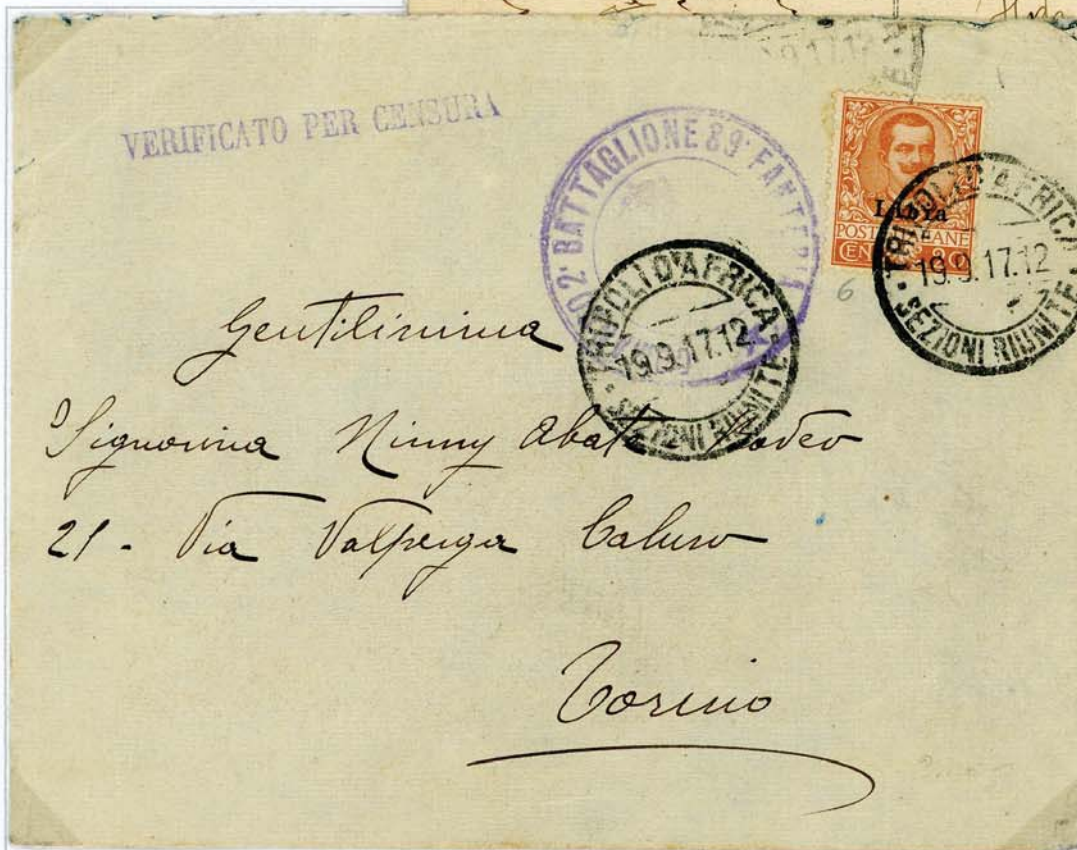 9.17.12
VERIFICATO PER CENSURA
2º BATTAGLIONE 89º FANTERIA
Libia
POSTE ITALIANE
CENT. 20
TRIPOLI D'AFRICA
19.9.17.12
SEZIONI RIUNITE
TRIPOLI D'AFRICA
19.9.17.12
SEZIONI RIUNITE
6
Gentilissima
Signorina Ninny Abate
21 - Via Valperga Caluso
Torino